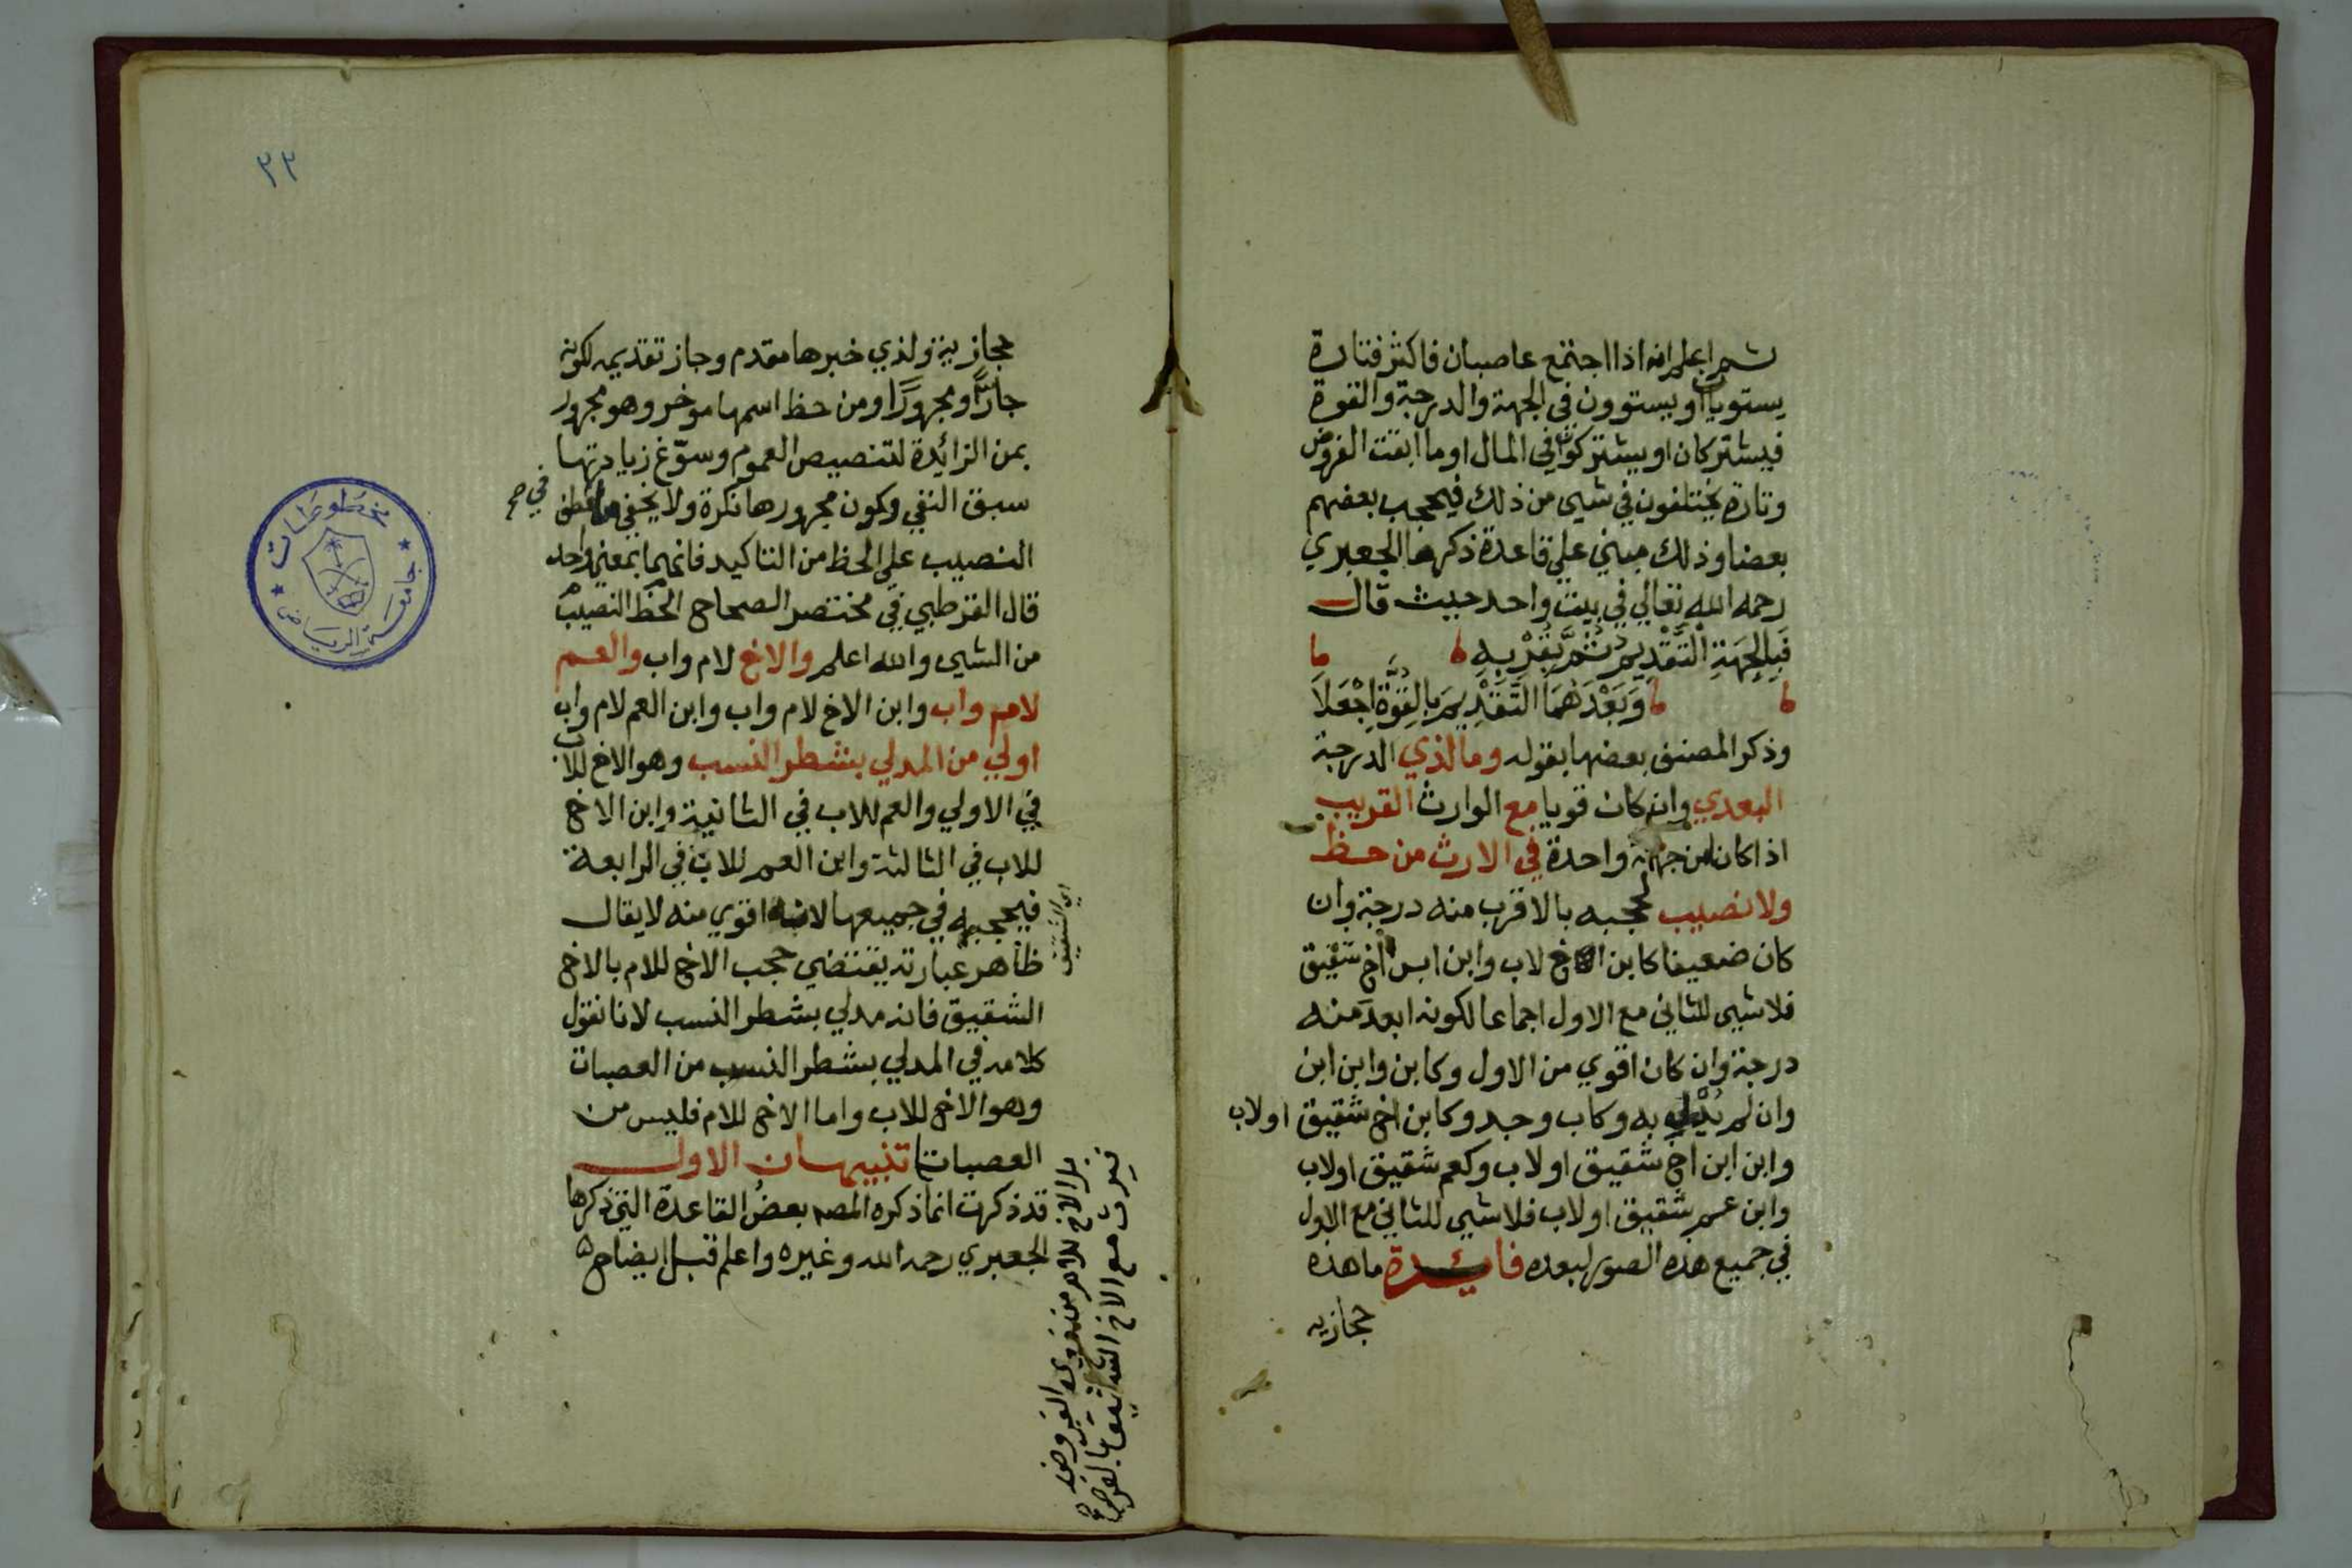 ثم اعلم انه اذا اجتمع عاصبان فاكثر فتارة
يستويان او يستوون في الجهة والدرجة والقوة
فيشتركان او يشتركون في المال او ما ابقت الفروض
وتارة يختلفون في شيى من ذلك فيحجب بعضهم
بعضا وذلك مبني على قاعدة ذكرها الجعبري
رحمه الله تعالي في بيت واحد حيث قال
فَبِالجِهَةِ التَّقْدِيمُ ثُمَّ بِقُرْبِهِ
وَبَعْدَهُمَا التَّقْدِيمَ بِالقُوَّةِ اجْعَلَا
وذكر المصنف بعضها بقوله وما لذي الدرجة
البعدي وان كان قويا مع الوارث القريب
اذا كان من جهة واحدة في الارث من حظ
ولا نصيب لحجبه بالاقرب منه درجة وان
كان ضعيفا كابن اخ لاب وابن ابن اخ شقيق
فلا شيى للثاني مع الاول اجماعا لكونه ابعد منه
درجة وان كان اقوي من الاول وكابن وابن ابن
وان لم يُدْلِ به وكاب وجد وكابن اخ شقيق او لاب
وابن ابن اخ شقيق او لاب وكعم شقيق او لاب
وابن عم شقيق او لاب فلا شيى للثاني مع الاول
في جميع هذه الصور لبعده فائدة ما هذه
حجازيه
٣٢
حجازية ولذي خبرها مقدم وجاز تقديمه لكونه
جارًّا ومجرورًا ومن حظ اسمها موخر وهو مجرور
بمن الزائدة لتنصيص العموم وسوّغ زيادتها
سبق النفي وكون مجرورها نكرة ولا يخفي ما في عطف
في صح
النصيب على الحظ من التاكيد فانهما بمعني واحد
قال القرطبي في مختصر الصحاح الحظ النصيب
من الشيى والله اعلم والاخ لام واب والعم
لام واب وابن الاخ لام واب وابن العم لام واب
اولي من المدلي بشطر النسب وهو الاخ للاب
في الاولي والعم للاب في الثانية وابن الاخ
للاب في الثالثة وابن العم للاب في الرابعة
فيحجبه في جميعها لانه اقوي منه لا يقال
اي الشقيق
ظاهر عبارته يقتضي حجب الاخ للام بالاخ
الشقيق فانه مدلي بشطر النسب لانا نقول
كلامه في المدلي بشطر النسب من العصبات
وهو الاخ للاب واما الاخ للام فليس من
العصبات تنبيهان الاول
بل الاخ للام من ذوي الفروض
فيرث مع الاخ الشقيق بالفرض
قد ذكرت انما ذكره المصـ بعض القاعدة التي ذكرها
الجعبري رحمه الله وغيره واعلم قبل ايضاح
مخطوطات
جامعة الرياض